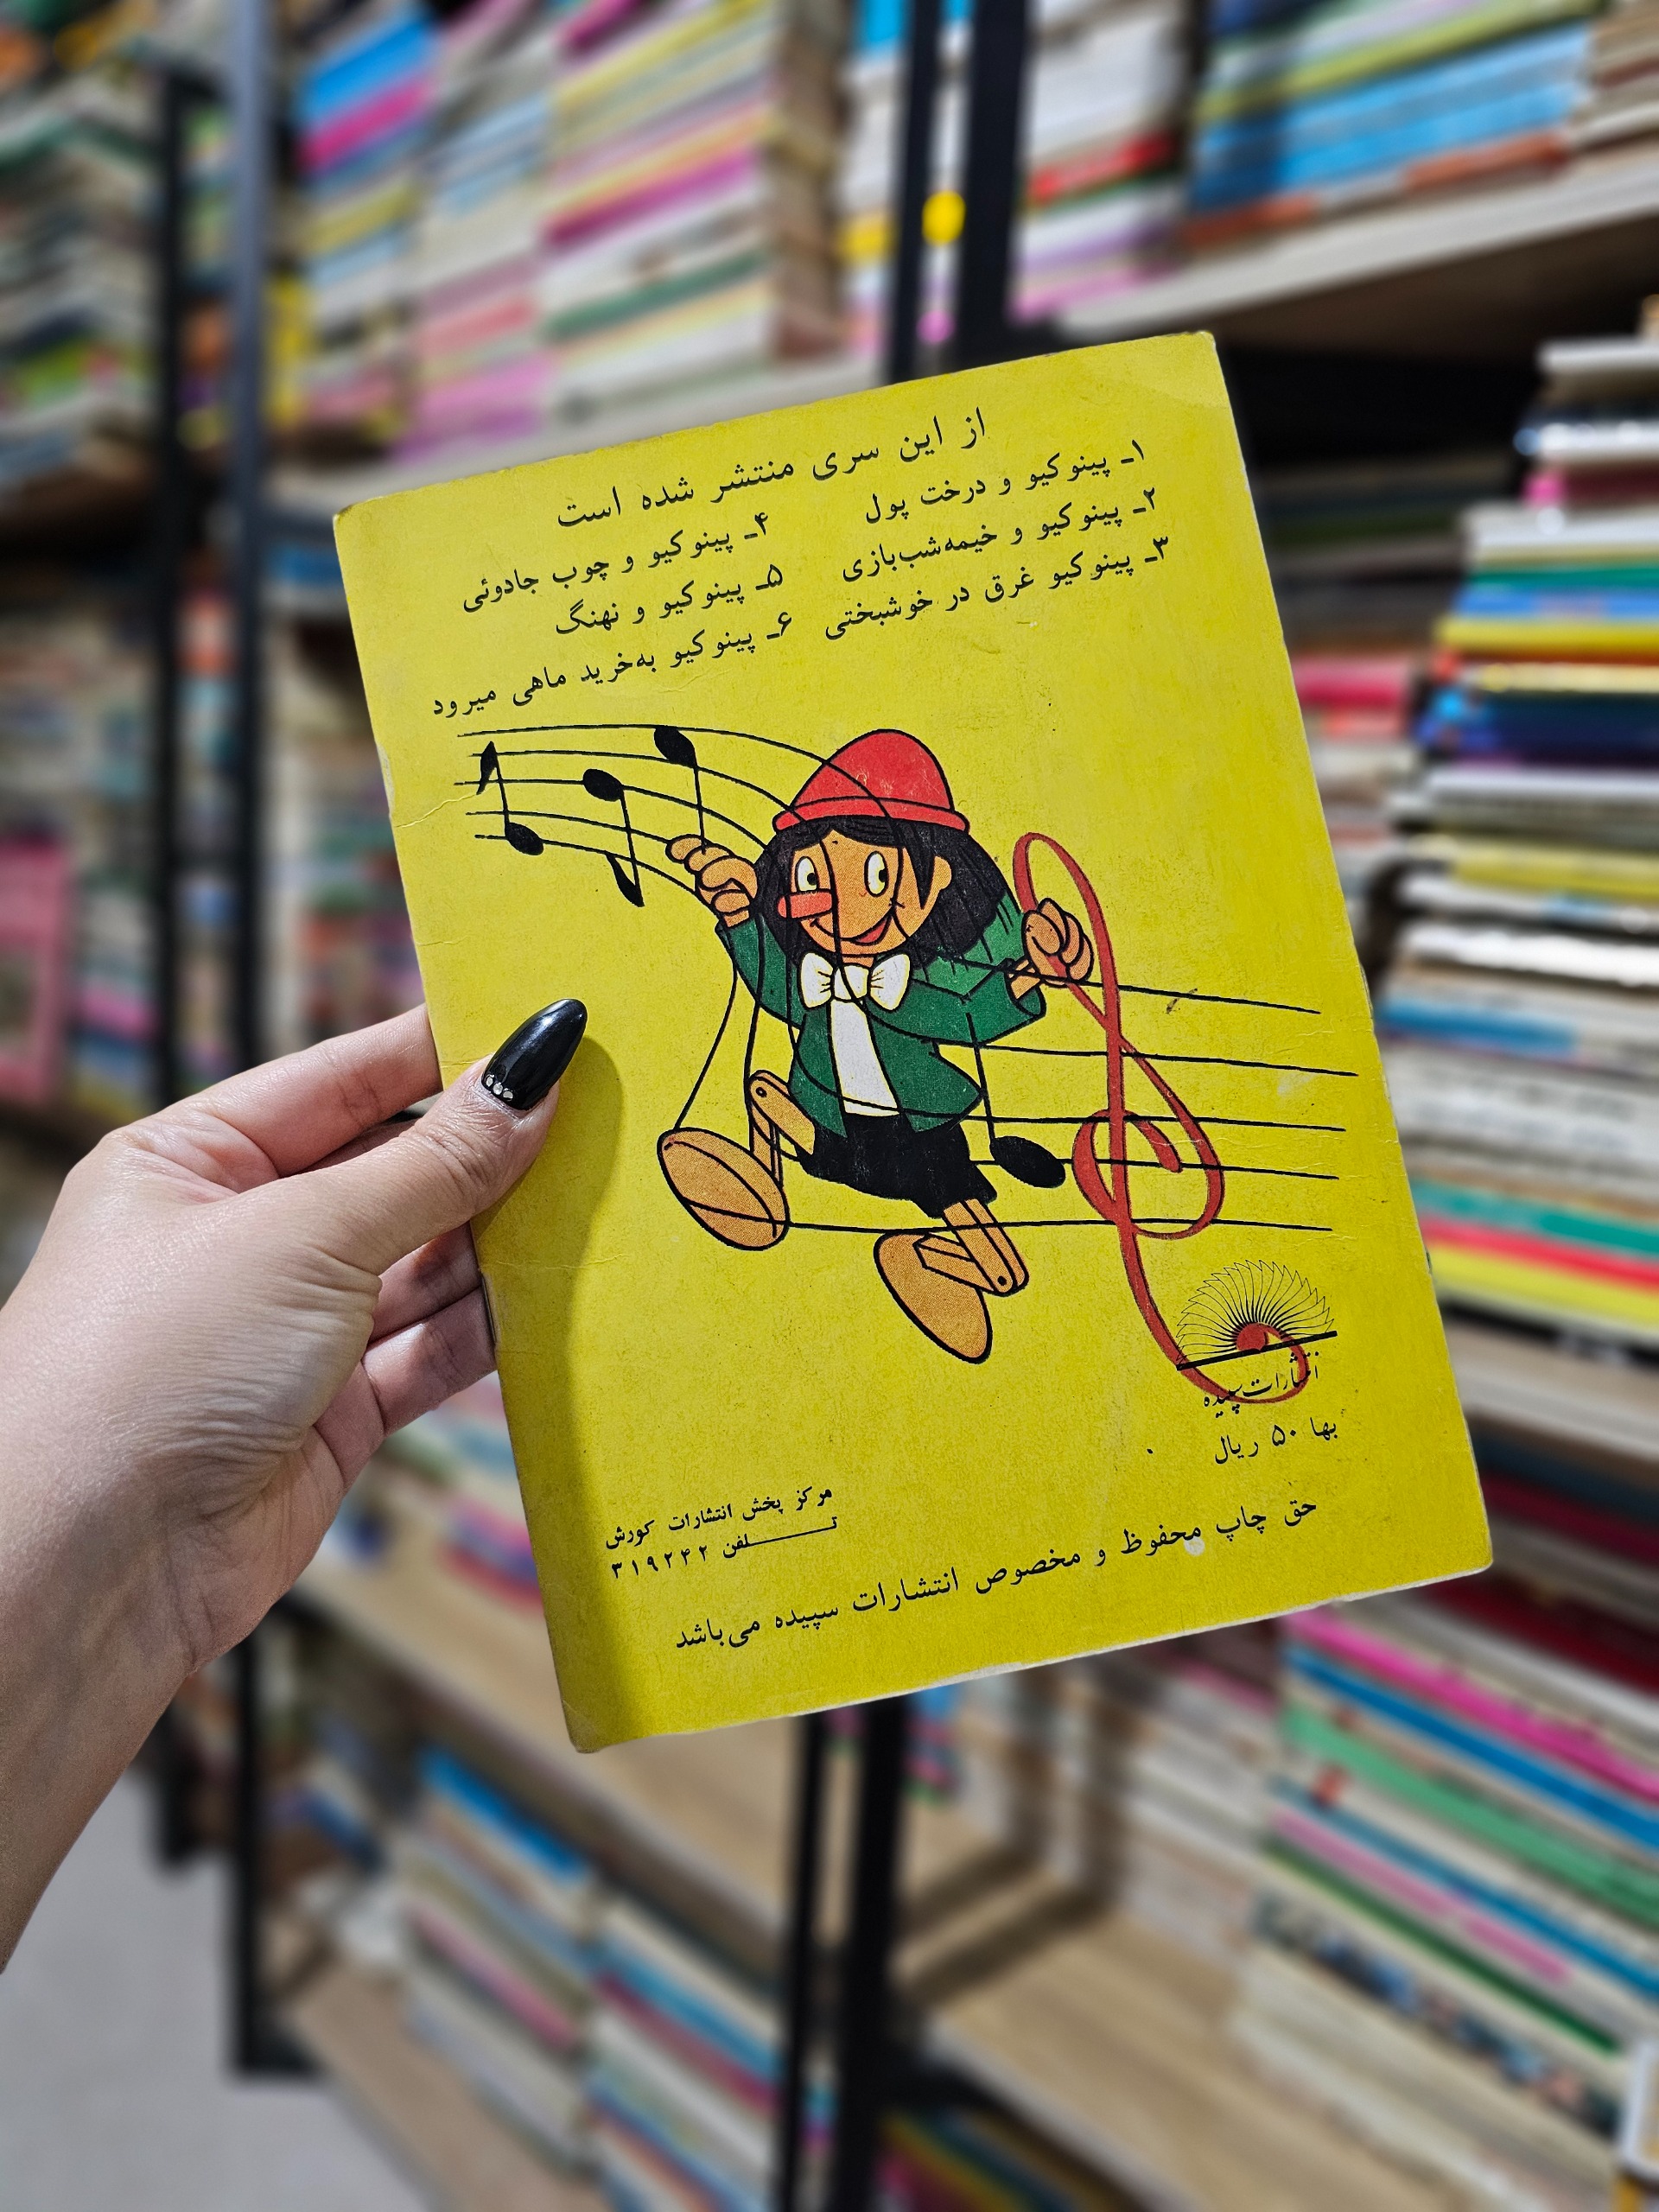 از این سری منتشر شده است
۱ـ پینوکیو و درخت پول
۲ـ پینوکیو و خیمه‌شب‌بازی
۳ـ پینوکیو غرق در خوشبختی
۴ـ پینوکیو و چوب جادوئی
۵ـ پینوکیو و نهنگ
۶ـ پینوکیو به‌خرید ماهی میرود
انتشارات سپیده
بها ۵۰ ریال
مرکز پخش انتشارات کورش
تـــلفن ۳۱۹۲۴۲
حق چاپ محفوظ و مخصوص انتشارات سپیده می‌باشد